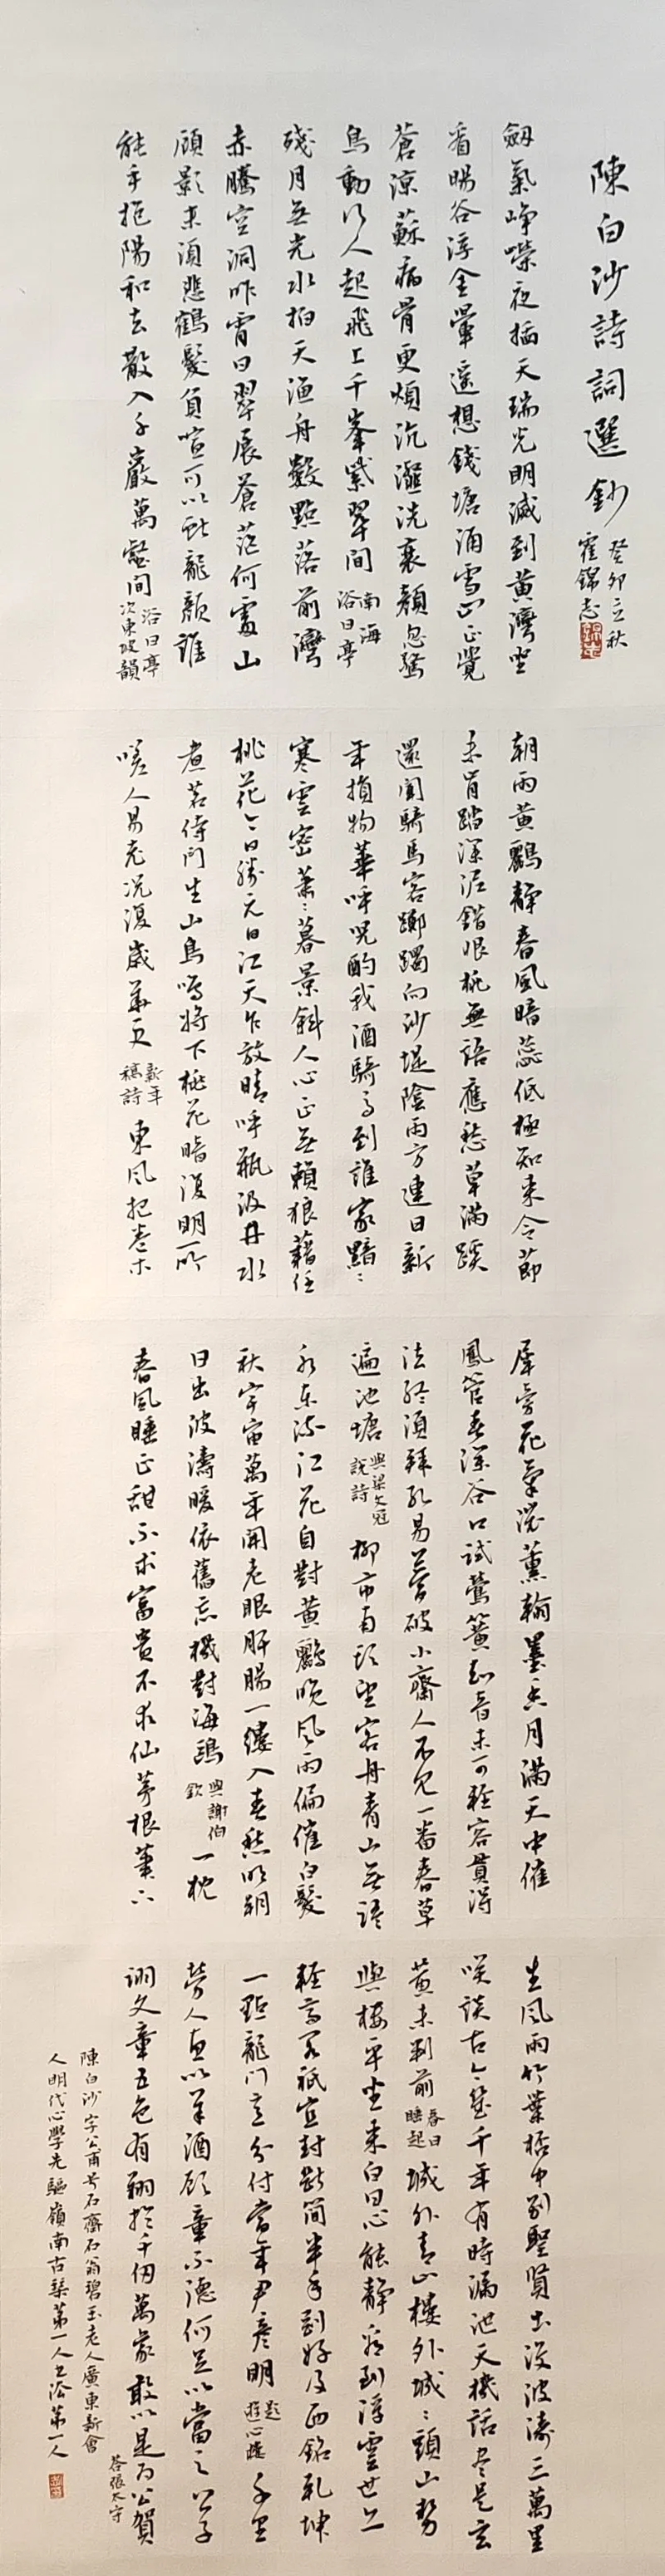 陳白沙詩詞選鈔
癸卯立秋
霍錦志
劔氣崢嶸夜插天瑞光明滅到黃灣坐
看暘谷浮金暈遥想錢塘涌雪山已覺
蒼涼蘇病骨更煩沆瀣洗衰顏忽驚
鳥動行人起飛上千峯紫翠間
南海
浴日亭
殘月無光水拍天漁舟數點落前灣
赤騰空洞昨宵日翠展蒼茫何處山
顧影未須悲鶴髮負喧可以獻龍顏誰
能手抱陽和去散入千巖萬壑間
浴日亭
次東坡韻
朝雨黃鸝靜春風暗蕊低極知來令節
未肯踏深泥錯恨桃無語應愁草滿蹊
還聞騎馬客躑躅向沙堤陰雨方連日新
年損物華呼兒酌我酒騎馬到誰家黯ミ
寒雲密蕭ミ暮景斜人心正無賴狼藉任
桃花今日勝元日江天乍放晴呼瓶汲井水
煮茗待門生山鳥鳴將下桃花暗復明所
嗟人易老況復歲華更
新年
稿詩
東風把卷木
犀旁花氣濃薰翰墨香月滿天中催
鳳管春深谷口試鶯簧知音未可輕容貫得
法終須拜孔易夢破小齋人不見一番春草
遍池塘
與梁文冠
說詩
柳市南頭望客舟青山無語
水東流江花自對黃鸝晚風雨偏催白髮
秋宇宙萬年開老眼肝腸一縷入春愁明朝
日出波濤暖依舊忘機對海鷗
與謝伯
欽
一枕
春風睡正甜不求富貴不求仙茅根葉下
生風雨竹葉杯中別聖賢出沒波濤三萬里
笑談古今幾千年有時漏泄天機話盡是玄
黃未判前
春日
睡起
城外青山樓外城城頭山勢
與樓平坐來白日心能靜看到浮雲世亦
輕高閣祇宜封斷簡半年剛好及西銘乾坤
一點龍門意分付當年尹彥明
題
遊心樓
千里
勞人直以羊酒顧童不德何足以當之公子
詡文章五色有翔於千仞萬象敢以是為公賀
答張太守
陳白沙字公甫号石齋石翁碧玉老人廣東新會
人明代心學先驅嶺南古琴第一人書法第一人